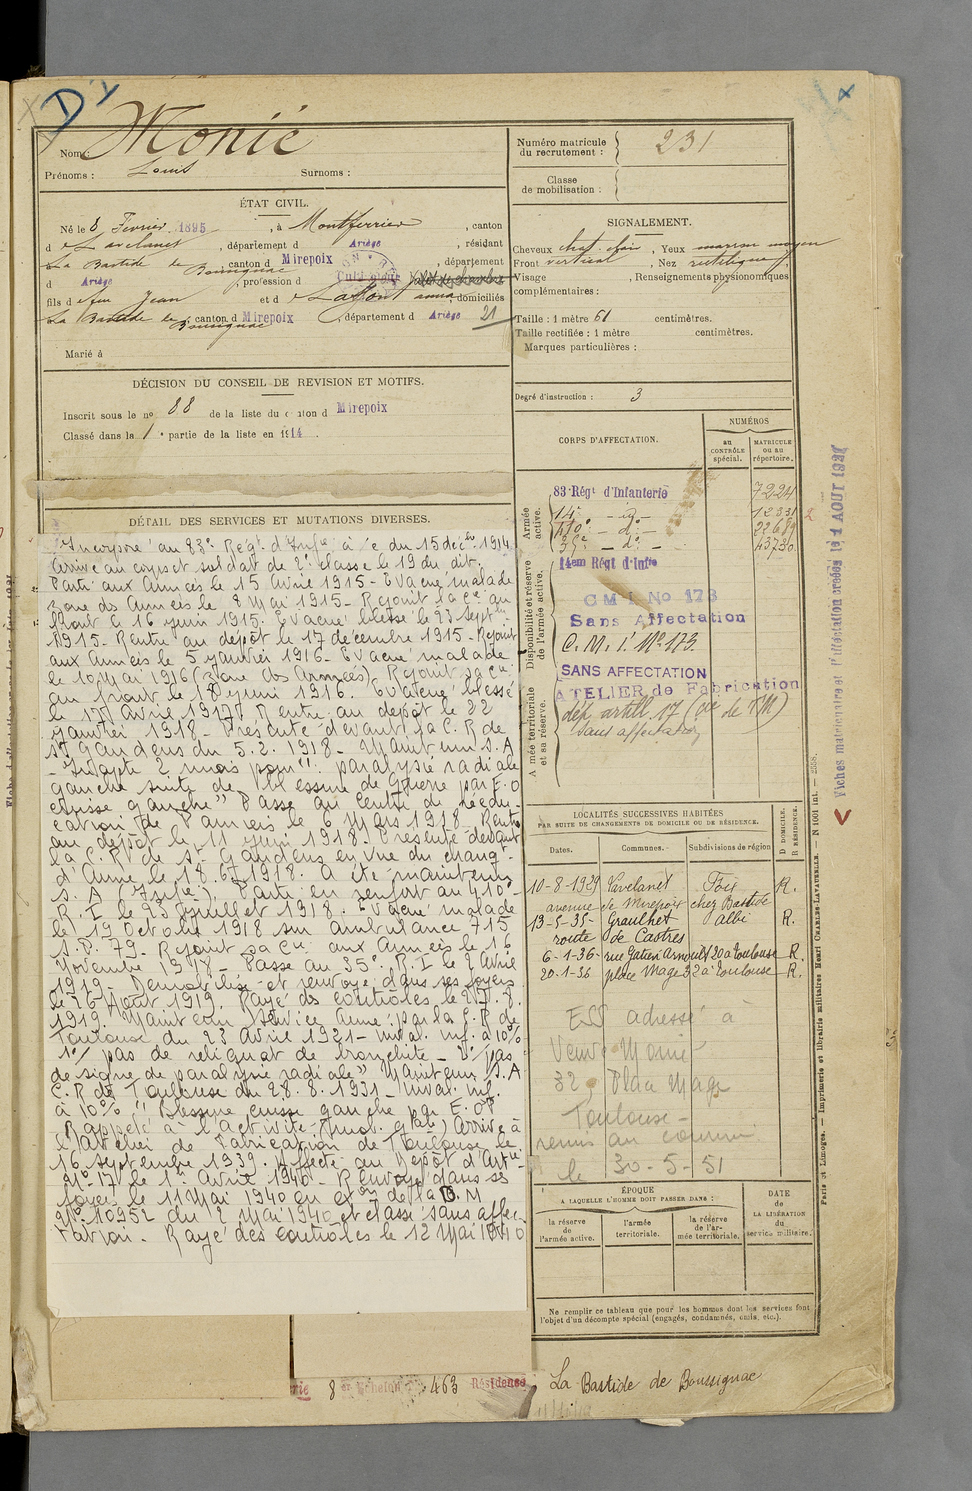 Dy
Nom : Monié
Prénoms : Louis Surnoms :
ÉTAT CIVIL.
Né le 8 Février 1895, à Montferrier, canton
d e Lavelanet, département d Ariège, résidant
La Bastide de Bousignac, canton d Mirepoix, département
d Ariège, profession d Cultivateur
fils d e feu Jean et d e Laffont Anna, domiciliés
La Bastide de Bousignac, canton d Mirepoix, département d Ariège 21
Marié à
DÉCISION DU CONSEIL DE REVISION ET MOTIFS.
Inscrit sous le n° 88 de la liste du canton d Mirepoix
Classé dans la 1e partie de la liste en 1914.
DÉTAIL DES SERVICES ET MUTATIONS DIVERSES.
Incorporé au 83e Régt d'Infie à c. du 15 décbre 1914
Arrivé au corps et soldat de 2e classe le 19 du dit.
Parti aux Armées le 15 Avril 1915 - Evacué malade
zone des Armées le 8 Mai 1915 - Rejoint sa Cie au
front le 16 juin 1915. Evacué blessé le 23 Septbre
1915. Rentré au dépôt le 17 décembre 1915 - Rejoint
aux Armées le 5 janvier 1916 - Evacué malade
le 10 Mai 1916 (zone des Armées). Rejoint sa Cie
au front le 18 juin 1916. Evacué blessé
le 17 Avril 1917. Rentré au dépôt le 22
janvier 1918 - Présenté devant la C. R. de
St Gaudens du 5.2.1918 - Maintenu S. A
- Inapte 2 mois pour : paralysie radiale
gauche suite de blessure de guerre par E. O
cuisse gauche" Passé au Centre de réédu-
cation de Pamiers le 6 Mars 1918 - Rentré
au dépôt le 11 juin 1918. Présenté devant
la C. R. de St Gaudens en vue du changt
d'Arme le 18.6.1918. A été maintenu
S. A (Infie). Parti en renfort au 410e
R. I le 23 juillet 1918. Evacué malade
le 19 Octobre 1918 sur ambulance 715
S.P. 79. Rejoint sa Cie aux Armées le 16
Novembre 1918 - Passé au 35e R. I le 2 Avril
1919 - Démobilisé et renvoyé dans ses foyers
le 26 Août 1919. Rayé des contrôles le 27.8.
1919. Maintenu Service Armé par la C. R de
Toulouse du 23 Avril 1921 - inval. inf. à 10%
1°/ pas de reliquat de bronchite - 2°/ pas
de signe de paralysie radiale" Maintenu S. A
C. R de Toulouse du 28.8.1931 - Inval. inf.
à 10% " Blessure cuisse gauche par E. O"
Rappelé à l'activité (mob. gale) Arrivé à
l'atelier de Fabrication de Toulouse le
16 septembre 1939. Affecté au Dépôt d'Artie
N° 17 le 1er Avril 1940 - Renvoyé dans ses
foyers le 11 Mai 1940 en exon de la D. M
N° 10952 du 2 Mai 1940 et classé sans affec-
tation - Rayé des contrôles le 12 Mai 1940
8 463 Résidence
Numéro matricule du recrutement : 231
Classe de mobilisation :
SIGNALEMENT.
Cheveux chat. clair, Yeux marron moyen
Front vertical, Nez rectiligne
Visage , Renseignements physionomiques
complémentaires :
Taille : 1 mètre 61 centimètres.
Taille rectifiée : 1 mètre centimètres.
Marques particulières :
Degré d'instruction : 3
CORPS D'AFFECTATION.
NUMÉROS
au CONTRÔLE spécial.
MATRICULE ou au répertoire.
Armée active.
83e Régt d'Infanterie 7224
14e - do - 12331
410e - do - 22689
35e - do - 43730
Disponibilité et réserve de l'armée active.
14em Régt d'Infie
C M I No 173
Sans Affectation
C. M. I. No 173.
Armée territoriale et sa réserve.
SANS AFFECTATION
ATELIER de Fabrication
dép. artill. 17 (Don de DM)
Sans affectation
LOCALITÉS SUCCESSIVES HABITÉES
PAR SUITE DE CHANGEMENTS DE DOMICILE OU DE RÉSIDENCE.
Dates. Communes. Subdivisions de région D DOMICILE. R RÉSIDENCE.
10-8-1929 Lavelanet Foix R.
avenue de Mirepoix chez Bastide
13-5-35- Graulhet Albi R.
route de Castres
6-1-36- rue Gatien Arnoult 20 a Toulouse R.
20-1-36 place Mage 32 a Toulouse R.
ESS adressé à
Veuve Monié
32, Place Mage
Toulouse -
remis au courrier
le 30-5-51
ÉPOQUE
A LAQUELLE L'HOMME DOIT PASSER DANS :
la réserve de l'armée active.
l'armée territoriale.
la réserve de l'armée territoriale.
DATE de LA LIBÉRATION du service militaire.
Ne remplir ce tableau que pour les hommes dont les services font
l'objet d'un décompte spécial (engagés, condamnés, omis, etc.).
La Bastide de Boussignac
Paris et Limoges. — Imprimerie et librairie militaires Henri CHARLES-LAVAUZELLE. — N° 1001 int. — 2558.
Fiches matriculaire et d'affectation créées le 4 AOUT 1927